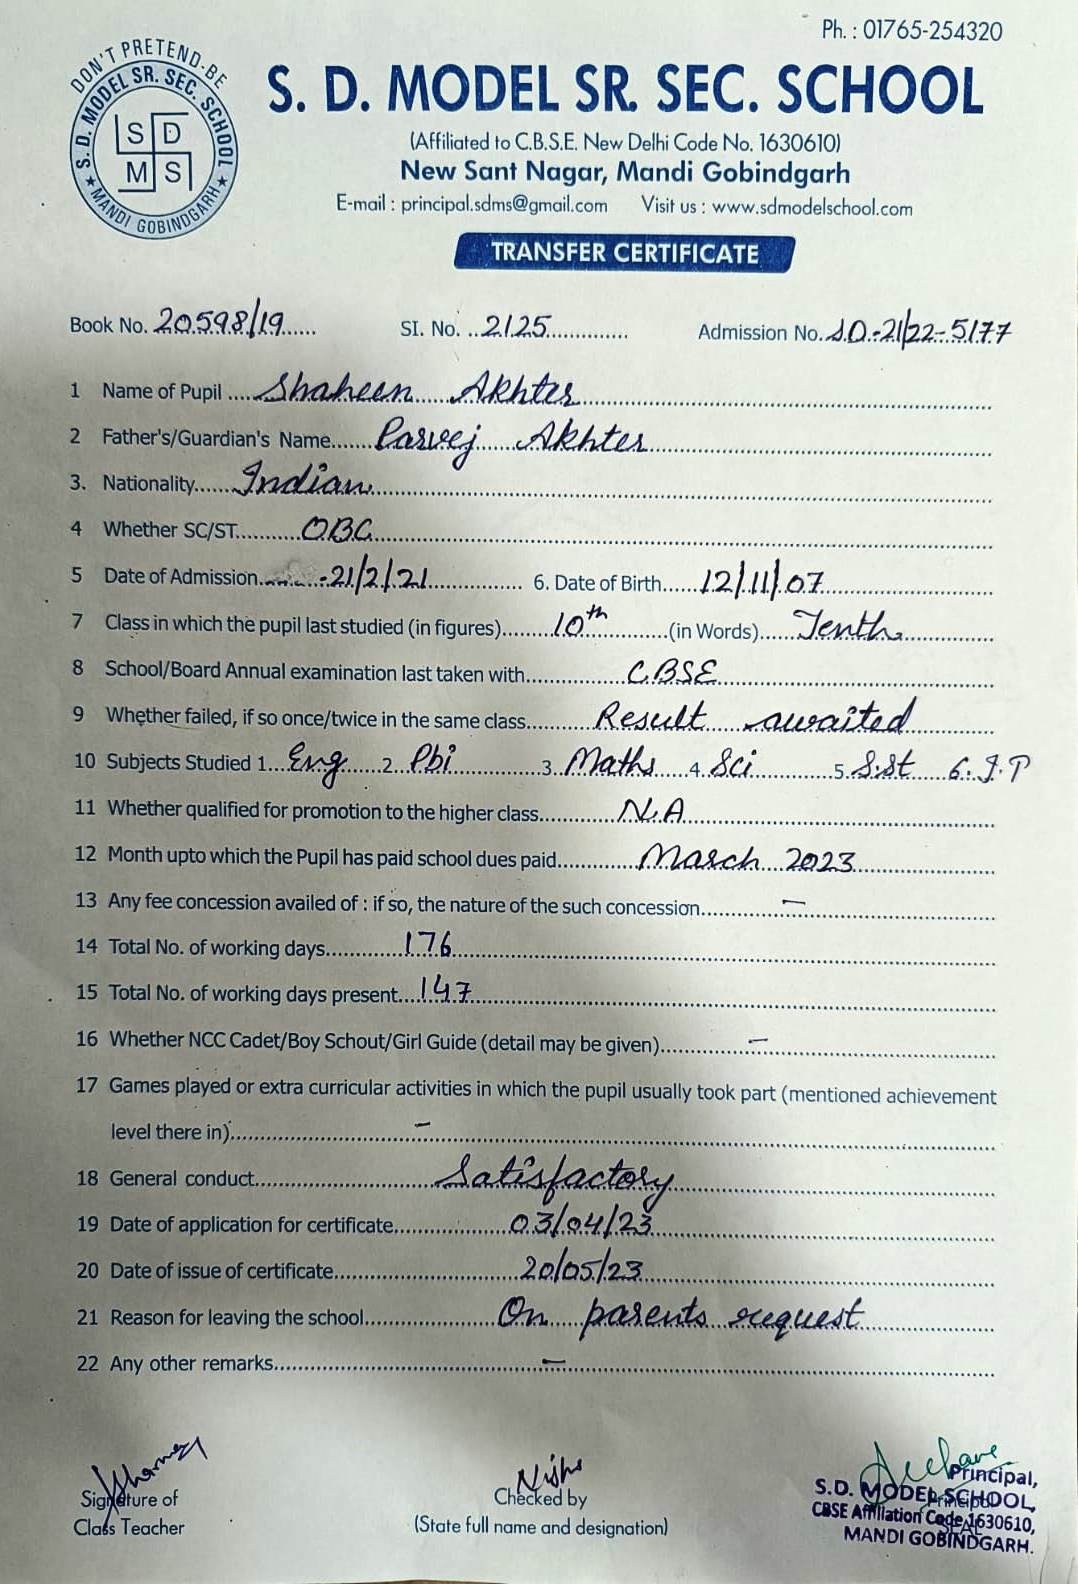 Ph. : 01765-254320
DON'T PRETEND-BE
S. D. MODEL SR. SEC. SCHOOL
★ MANDI GOBINDGARH ★
S D
M S
S. D. MODEL SR. SEC. SCHOOL
(Affiliated to C.B.S.E. New Delhi Code No. 1630610)
New Sant Nagar, Mandi Gobindgarh
E-mail : principal.sdms@gmail.com Visit us : www.sdmodelschool.com
TRANSFER CERTIFICATE
Book No. 20598/19 SI. No. 2125 Admission No. S.D.-21/22-5177
1 Name of Pupil Shaheen Akhter
2 Father's/Guardian's Name Parvej Akhter
3. Nationality Indian
4 Whether SC/ST OBC
5 Date of Admission 21/2/21 6. Date of Birth 12/11/07
7 Class in which the pupil last studied (in figures) 10th (in Words) Tenth
8 School/Board Annual examination last taken with CBSE
9 Whether failed, if so once/twice in the same class Result awaited
10 Subjects Studied 1. Eng 2. Pbi 3. Maths 4. Sci 5. S.St 6. I.P
11 Whether qualified for promotion to the higher class N.A
12 Month upto which the Pupil has paid school dues paid March 2023
13 Any fee concession availed of : if so, the nature of the such concession –
14 Total No. of working days 176
15 Total No. of working days present 147
16 Whether NCC Cadet/Boy Schout/Girl Guide (detail may be given) –
17 Games played or extra curricular activities in which the pupil usually took part (mentioned achievement
level there in) –
18 General conduct Satisfactory
19 Date of application for certificate 03/04/23
20 Date of issue of certificate 20/05/23
21 Reason for leaving the school On parents request
22 Any other remarks –
Nisha
Signature of
Class Teacher
Checked by
(State full name and designation)
Principal,
S.D. MODEL SCHOOL,
Principal
CBSE Affiliation Code 1630610,
SEAL
MANDI GOBINDGARH.